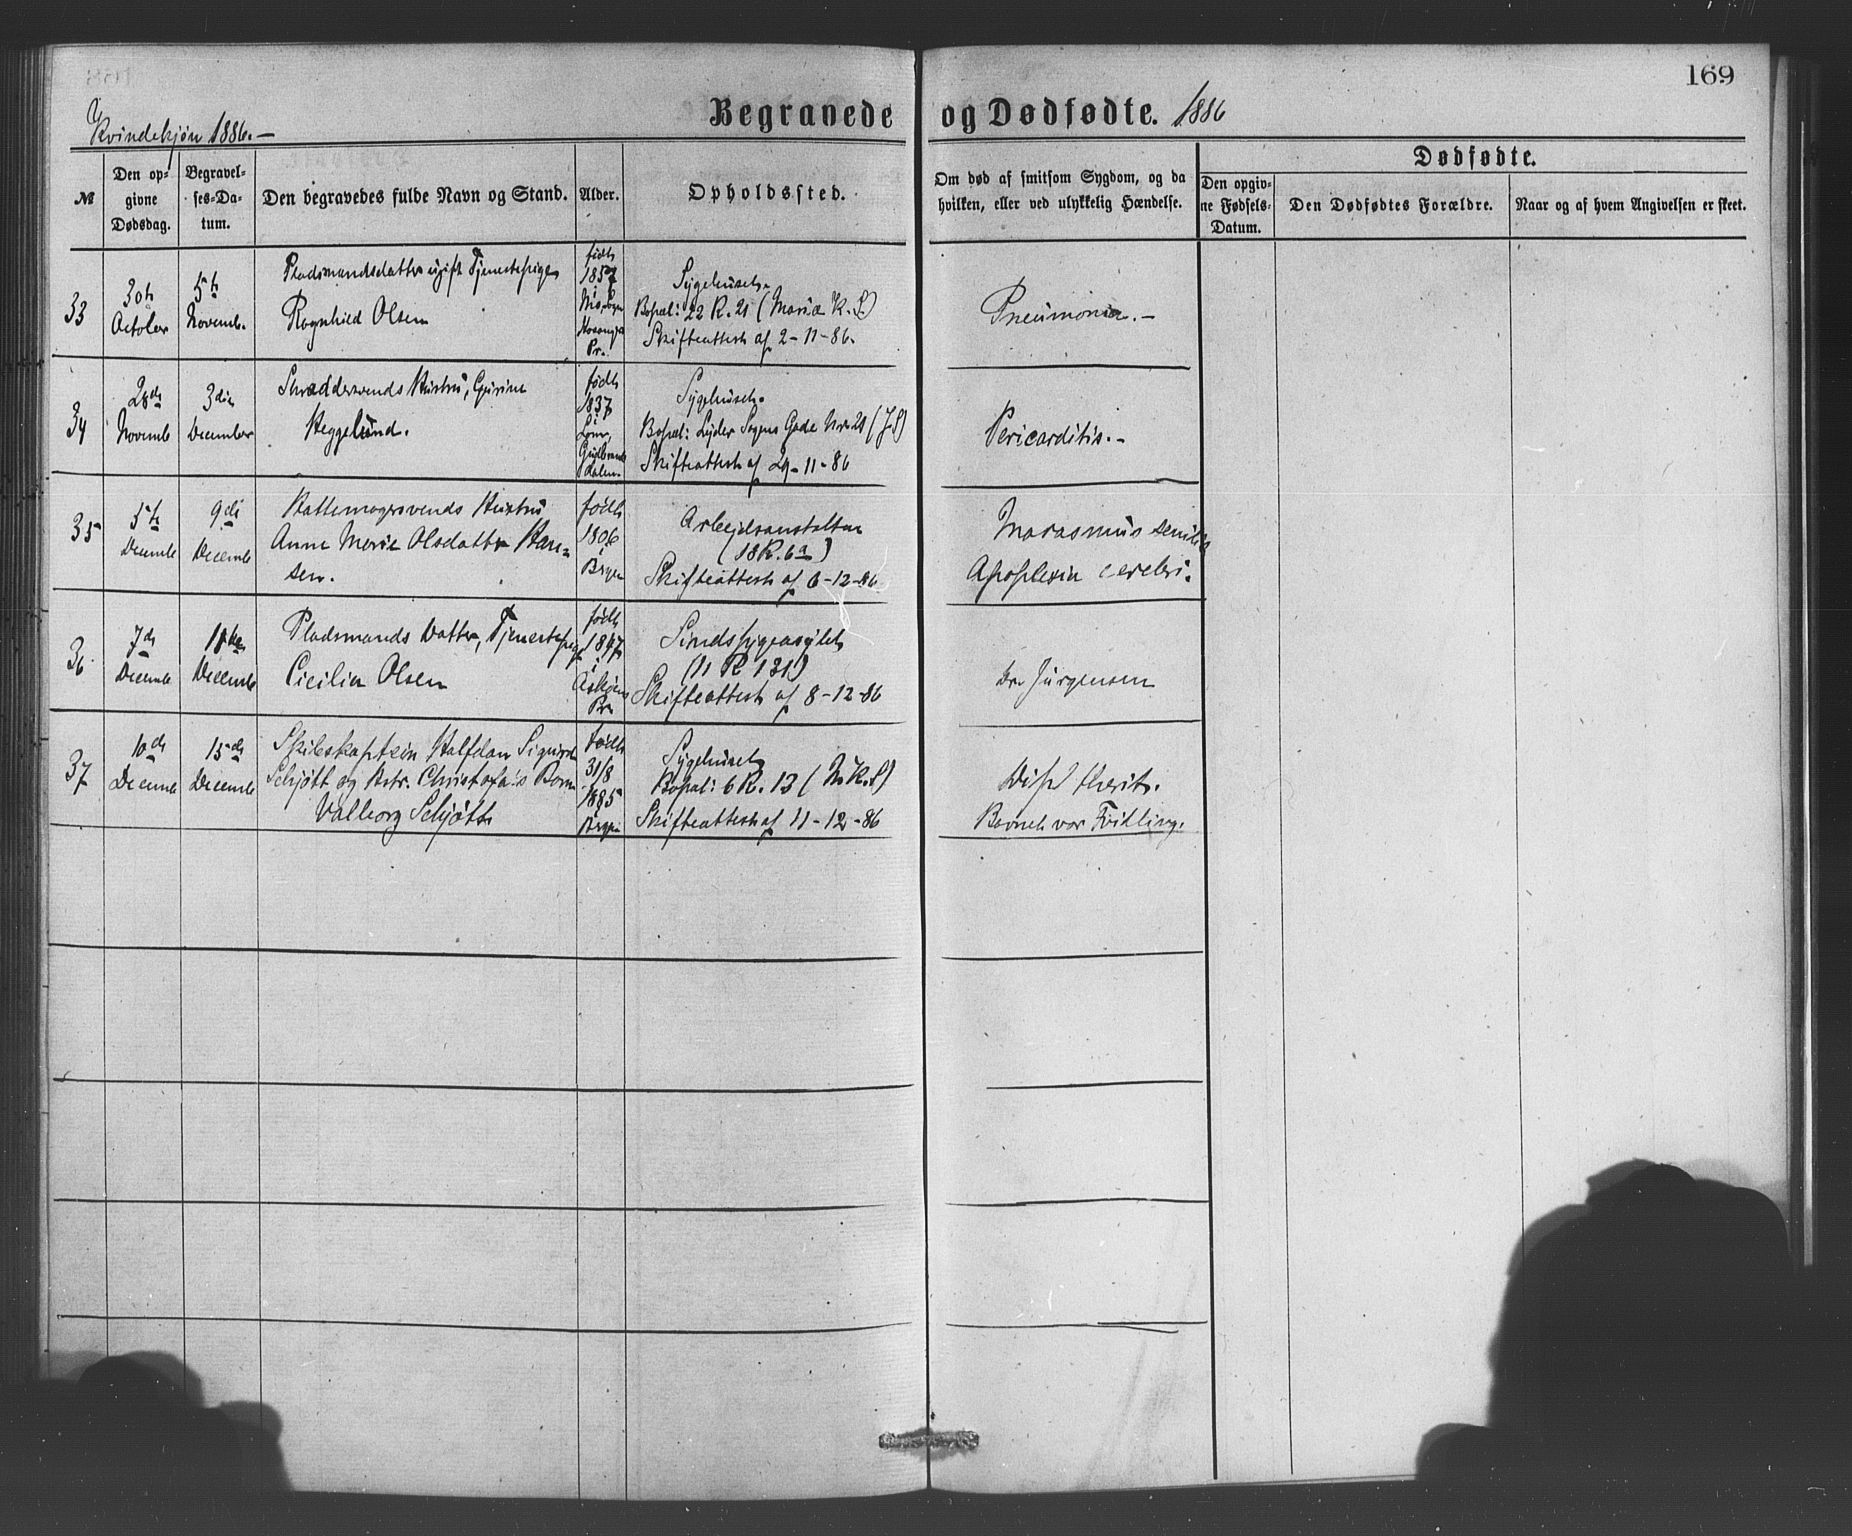 169
Kvindekjøn 1886.-
Begravede og Dødfødte. 1886
№
Den opgivne Dødsdag.
Begravelses-Datum.
Den begravedes fulde Navn og Stand.
Alder.
Opholdssted.
Om død af smitsom Sygdom, og da hvilken, eller ved ulykkelig Hændelse.
Dødfødte.
Den opgivne Fødsels-Datum.
Den Dødfødtes Forældre.
Naar og af hvem Angivelsen er skeet.
33
30te October
5te Novemb.
Pladsmandsdatter ugift Tjenestepige
Ragnhild Olsen
født 1857 i
Pr.
Sygehuset.
Bopæl: 22 R. 21 (Mariæ K. S.)
Skifteattest af 2-11-86.
Pneumonia.-
34
28de Novemb
3die December
Skrædersvends Hustru, Gurine
Heggelund.
født 1837 i Lom, Gudbrandsdalen.
Sygehuset.
Bopæl: Lyder Sagens Gade Nr. 21 (J.S)
Skifteattest af 29-11-86
Pericarditis.-
35
5te Decemb
9de Decemb
Hattemagersvends Hustru
Anne Marie Olsdatter Hansen.
født 1806 i Bergen
Arbeidsanstalten
(18 R. 6a)
Skifteattest af 6-12-86
Marasmus senilis
Apoplexia cerebri.
36
7de Decemb
11te Decemb
Pladsmands Datter, Tjenestepige
Cicilia Olsen
født 1847 i Askøens Pr.
Sindssygeasylet
(11 R 131)
Skifteattest af 8-12-86
Dr. Jürgensen
37
10de Decemb
15de Decemb
Skibskaptein Halfdan Sigurd
Schjøtt og Hstr. Christofa's Barn
Valborg Schjøtt
født 31/8 1885 Bergen
Sygehuset
Bopæl: 6 R. 13 (N.K.S)
Skifteattest af 11-12-86
Diphtherit.
Barnet var Tvilling.